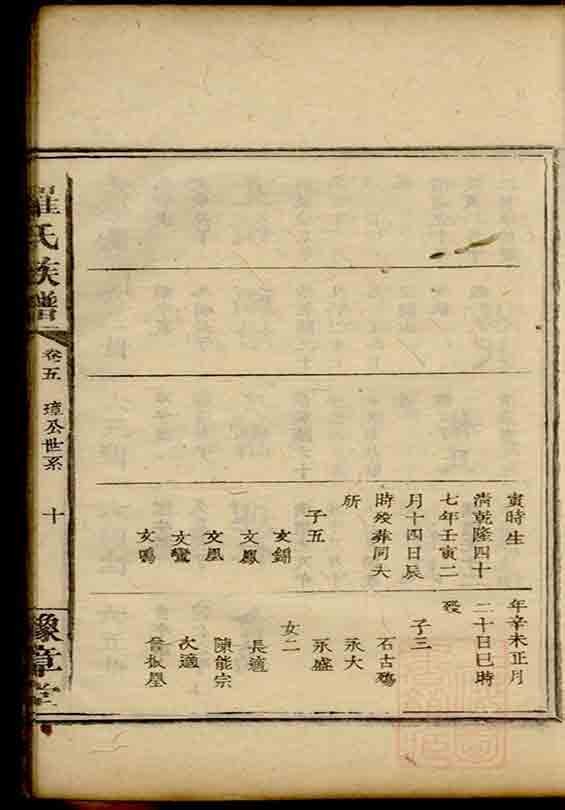 寅時生
清乾隆四十
七年壬寅二
月十四日辰
時殁葬同大
所
子五
文錦
文鳳
文凰
文鸞
文鳴
年辛未正月
二十日巳時
殁
子三
石古
永大
永盛
女二
長適
陳能宗
次適
振聲
羅氏族譜
卷五
璋公世系
十
豫章堂